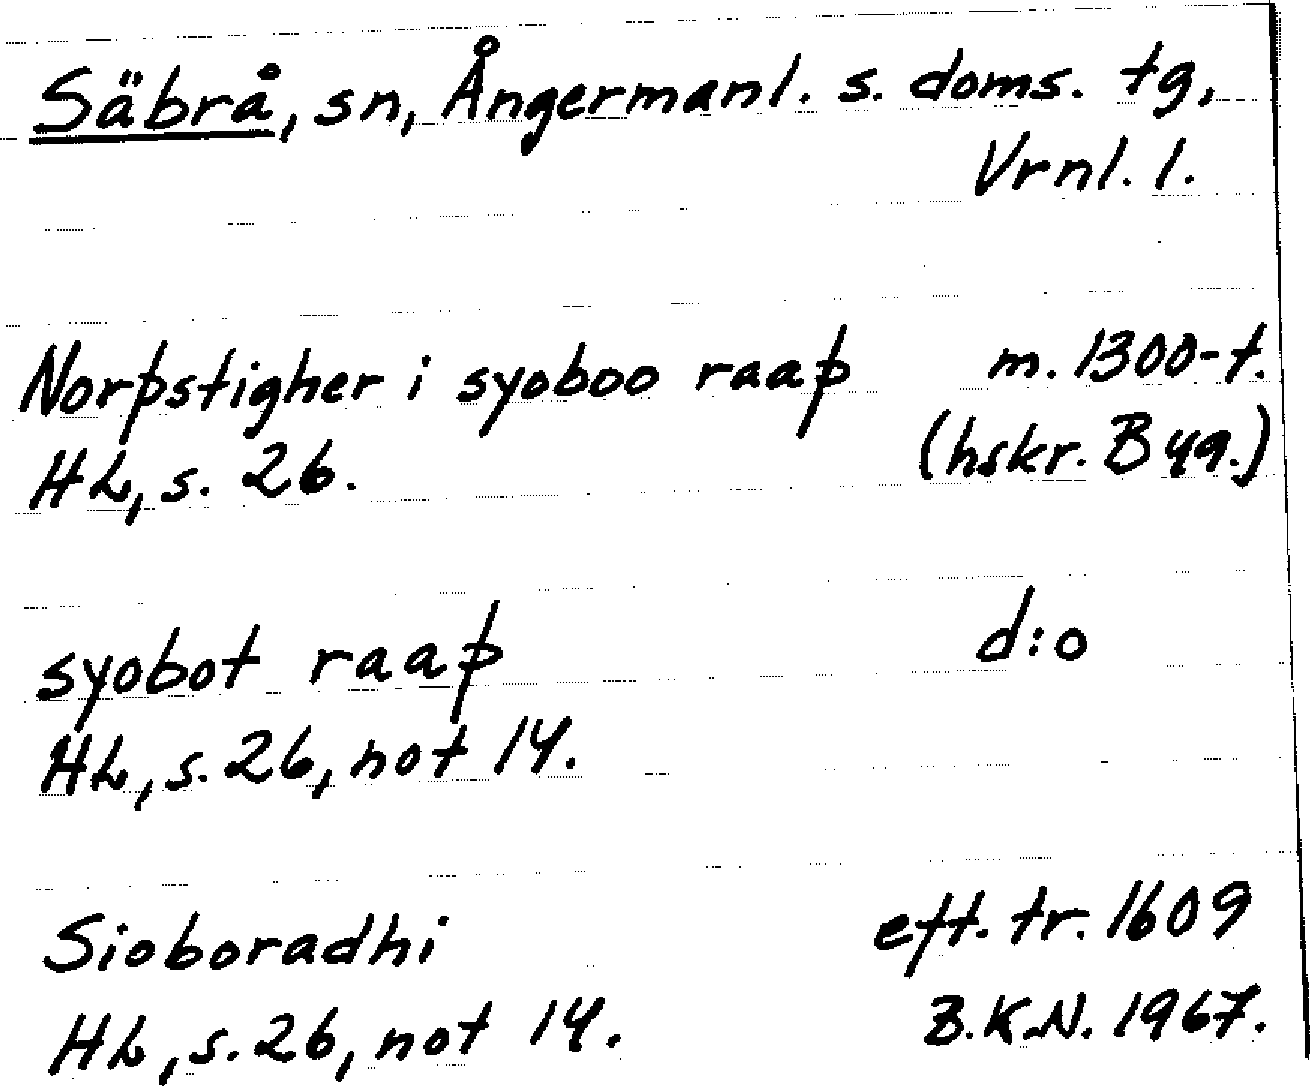 Säbrå, sn, Ångermanl. s. doms. tg,
Vrnl. l.
Norþstigher i syoboo raaþ m. 1300-t.
HL, s. 26. (hskr. B 49.)
syobot raaþ d:o
HL, s. 26, not 14.
Sioboradhi eft. tr. 1609
HL, s. 26, not 14. B.K.N. 1967.